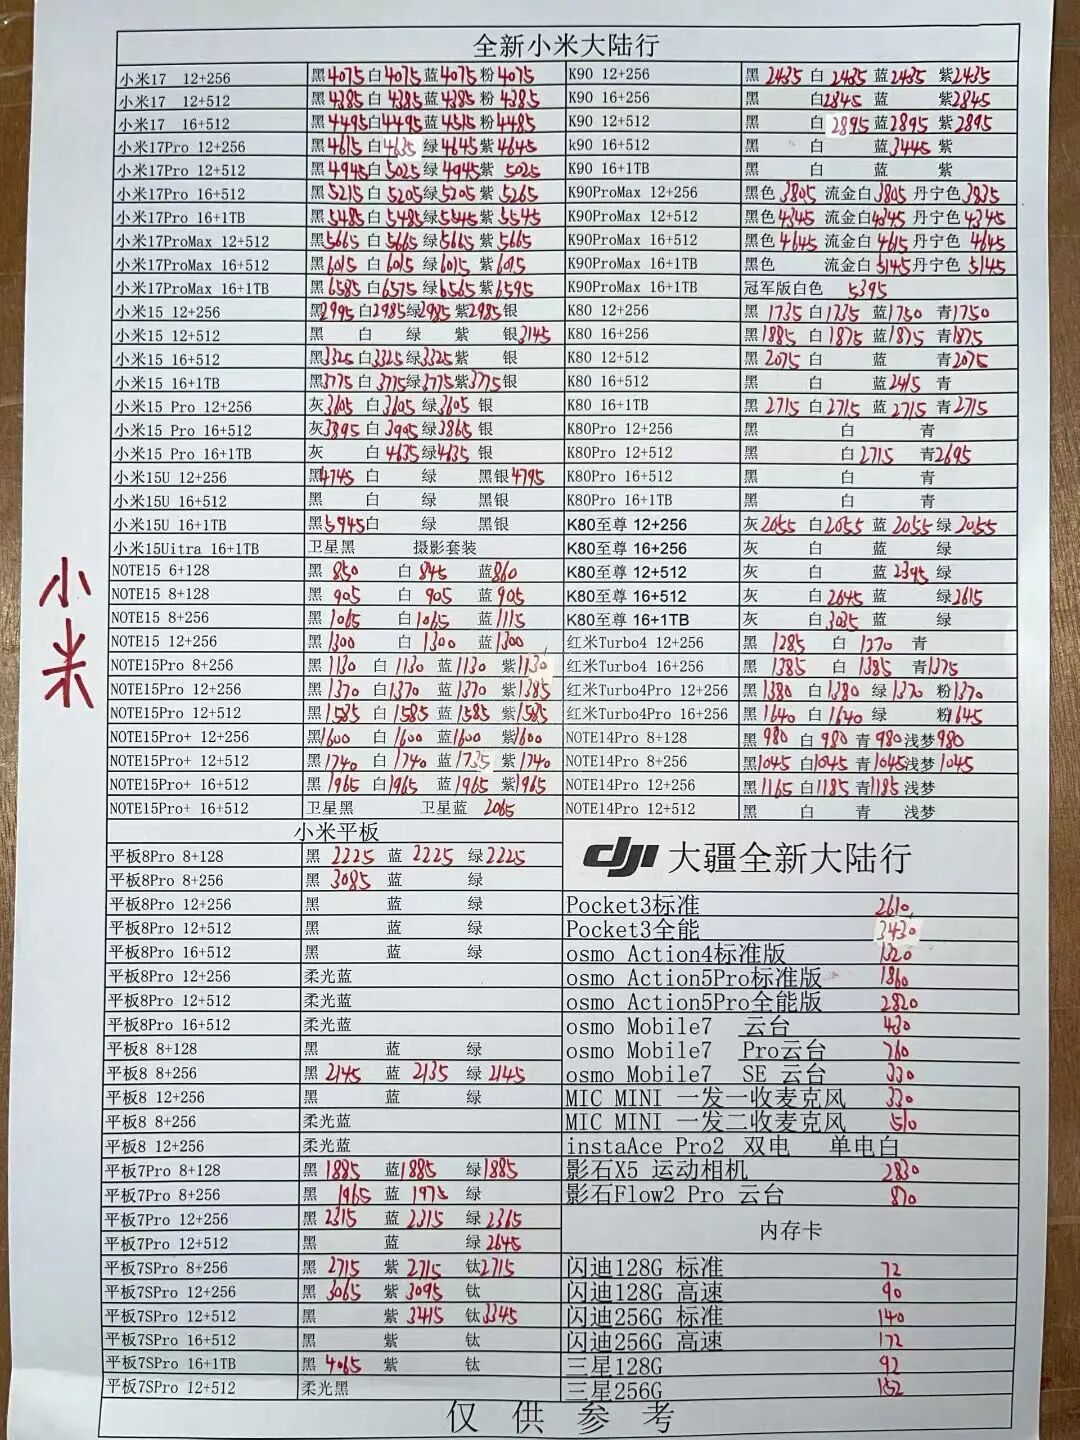 全新小米大陆行
小米17 12+256 黑4075 白4075 蓝4075 粉4075
小米17 12+512 黑4385 白4385 蓝4385 粉4385
小米17 16+512 黑4495 白4495 蓝4515 粉4485
小米17Pro 12+256 黑4615 白4635 绿4645 紫4645
小米17Pro 12+512 黑4945 白5025 绿4945 紫5025
小米17Pro 16+512 黑5215 白5205 绿5205 紫5265
小米17Pro 16+1TB 黑5485 白5485 绿5545 紫5545
小米17ProMax 12+512 黑5665 白5665 绿5665 紫5665
小米17ProMax 16+512 黑6015 白6015 绿6015 紫6015
小米17ProMax 16+1TB 黑6585 白6575 绿6565 紫6595
小米15 12+256 黑2995 白2985 绿2985 紫2985 银
小米15 12+512 黑 白 绿 紫 银3145
小米15 16+512 黑3325 白3325 绿3325 紫 银
小米15 16+1TB 黑3775 白3775 绿3775 紫3775 银
小米15 Pro 12+256 灰3605 白3605 绿3605 银
小米15 Pro 16+512 灰3895 白3905 绿3865 银
小米15 Pro 16+1TB 灰 白4635 绿4635 银
小米15U 12+256 黑4745 白 绿 黑银4795
小米15U 16+512 黑 白 绿 黑银
小米15U 16+1TB 黑5945 白 绿 黑银
小米15Uitra 16+1TB 卫星黑 摄影套装
NOTE15 6+128 黑850 白845 蓝860
NOTE15 8+128 黑905 白905 蓝905
NOTE15 8+256 黑1065 白1065 蓝1115
NOTE15 12+256 黑1300 白1300 蓝1300
NOTE15Pro 8+256 黑1130 白1130 蓝1130 紫1130
NOTE15Pro 12+256 黑1370 白1370 蓝1370 紫1385
NOTE15Pro 12+512 黑1585 白1585 蓝1585 紫1585
NOTE15Pro+ 12+256 黑1600 白1600 蓝1600 紫1600
NOTE15Pro+ 12+512 黑1740 白1740 蓝1735 紫1740
NOTE15Pro+ 16+512 黑1965 白1965 蓝1965 紫1965
NOTE15Pro+ 16+512 卫星黑 卫星蓝 2065
K90 12+256 黑2435 白2435 蓝2435 紫2435
K90 16+256 黑 白2845 蓝 紫2845
K90 12+512 黑 白2895 蓝2895 紫2895
k90 16+512 黑 白 蓝3445 紫
K90 16+1TB 黑 白 蓝 紫
K90ProMax 12+256 黑色3805 流金白3805 丹宁色3835
K90ProMax 12+512 黑色4345 流金白4345 丹宁色4345
K90ProMax 16+512 黑色4645 流金白4615 丹宁色4645
K90ProMax 16+1TB 黑色 流金白5145 丹宁色5145
K90ProMax 16+1TB 冠军版白色 5395
K80 12+256 黑1735 白1735 蓝1750 青1750
K80 16+256 黑1885 白1875 蓝1875 青1875
K80 12+512 黑2075 白 蓝 青2075
K80 16+512 黑 白 蓝2415 青
K80 16+1TB 黑2715 白2715 蓝2715 青2715
K80Pro 12+256 黑 白 青
K80Pro 12+512 黑 白2715 青2695
K80Pro 16+512 黑 白 青
K80Pro 16+1TB 黑 白 青
K80至尊 12+256 灰2055 白2055 蓝2055 绿2055
K80至尊 16+256 灰 白 蓝 绿
K80至尊 12+512 灰 白 蓝2395 绿
K80至尊 16+512 灰 白2645 蓝 绿2615
K80至尊 16+1TB 灰 白3035 蓝 绿
红米Turbo4 12+256 黑1285 白1270 青
红米Turbo4 16+256 黑1385 白1385 青1375
红米Turbo4Pro 12+256 黑1380 白1380 绿1370 粉1370
红米Turbo4Pro 16+256 黑1640 白1640 绿 粉1645
NOTE14Pro 8+128 黑980 白980 青980 浅梦980
NOTE14Pro 8+256 黑1045 白1045 青1045 浅梦1045
NOTE14Pro 12+256 黑1165 白1185 青1185 浅梦
NOTE14Pro 12+512 黑 白 青 浅梦
小米
小米平板
平板8Pro 8+128 黑2225 蓝2225 绿2225
平板8Pro 8+256 黑3085 蓝 绿
平板8Pro 12+256 黑 蓝 绿
平板8Pro 12+512 黑 蓝 绿
平板8Pro 16+512 黑 蓝 绿
平板8Pro 12+256 柔光蓝
平板8Pro 12+512 柔光蓝
平板8Pro 16+512 柔光蓝
平板8 8+128 黑 蓝 绿
平板8 8+256 黑2145 蓝2135 绿2145
平板8 12+256 黑 蓝 绿
平板8 8+256 柔光蓝
平板8 12+256 柔光蓝
平板7Pro 8+128 黑1885 蓝1885 绿1885
平板7Pro 8+256 黑1965 蓝1975 绿
平板7Pro 12+256 黑2315 蓝2315 绿2365
平板7Pro 12+512 黑 蓝 绿2645
平板7SPro 8+256 黑2715 紫2715 钛2715
平板7SPro 12+256 黑3065 紫3095 钛
平板7SPro 12+512 黑 紫3415 钛3345
平板7SPro 16+512 黑 紫 钛
平板7SPro 16+1TB 黑4065 紫 钛
平板7SPro 12+512 柔光黑
dji 大疆全新大陆行
Pocket3标准 2610
Pocket3全能 3430
osmo Action4标准版 1320
osmo Action5Pro标准版 1860
osmo Action5Pro全能版 2820
osmo Mobile7 云台 430
osmo Mobile7 Pro云台 760
osmo Mobile7 SE 云台 330
MIC MINI 一发一收麦克风 330
MIC MINI 一发二收麦克风 510
instaAce Pro2 双电 单电白
影石X5 运动相机 2830
影石Flow2 Pro 云台 870
内存卡
闪迪128G 标准 72
闪迪128G 高速 90
闪迪256G 标准 140
闪迪256G 高速 172
三星128G 92
三星256G 152
仅供参考